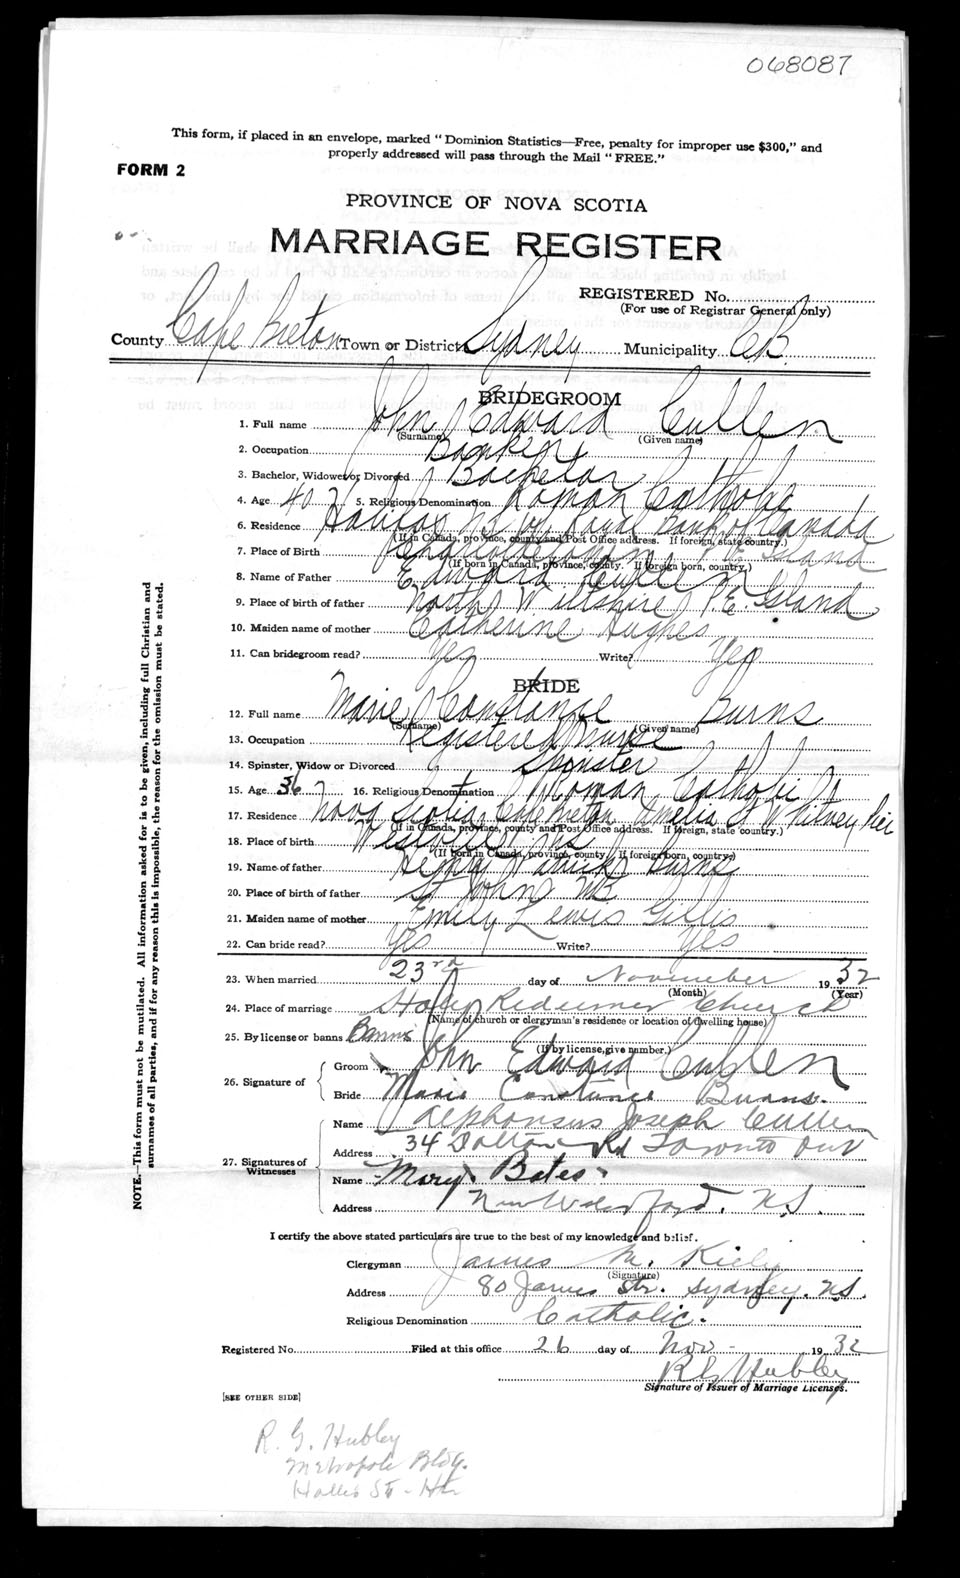 068087
This form, if placed in an envelope, marked "Dominion Statistics—Free, penalty for improper use $300," and
properly addressed will pass through the Mail "FREE."
FORM 2
PROVINCE OF NOVA SCOTIA
MARRIAGE REGISTER
REGISTERED No.
(For use of Registrar General only)
County Cape Breton Town or District Sydney Municipality C.B.
BRIDEGROOM
1. Full name John Edward Cullen
(Surname) (Given name)
2. Occupation Banker
3. Bachelor, Widower or Divorced Bachelor
4. Age 40 5. Religious Denomination Roman Catholic
6. Residence Halifax NS Royal Bank of Canada
(If in Canada, province, county and Post Office address. If foreign, state country.)
7. Place of Birth Charlottetown P.E. Island
(If born in Canada, province, county. If foreign born, country.)
8. Name of Father Edward Cullen
9. Place of birth of father North Wiltshire P.E. Island
10. Maiden name of mother Catherine Hughes
11. Can bridegroom read? Yes Write? Yes
BRIDE
12. Full name Marie Constance Burns
(Surname) (Given name)
13. Occupation Registered Nurse
14. Spinster, Widow or Divorced Spinster
15. Age 36 16. Religious Denomination Roman Catholic
17. Residence Nova Scotia Cape Breton Amelia St Whitney Pier
(If in Canada, province, county and Post Office address. If foreign, state country.)
18. Place of birth Westville NS
(If born in Canada, province, county. If foreign born, country.)
19. Name of father Henry Patrick Burns
20. Place of birth of father St Johns NB
21. Maiden name of mother Emily Lewis Gillis
22. Can bride read? Yes Write? Yes
23. When married 23rd day of November 1932
(Month) (Year)
24. Place of marriage Holy Redeemer Church
(Name of church or clergyman's residence or location of dwelling house)
25. By license or banns Banns
(If by license, give number.)
26. Signature of
Groom John Edward Cullen
Bride Marie Constance Burns.
27. Signatures of Witnesses
Name Alphonsus Joseph Cullen
Address 34 Dalton Rd Toronto Ont
Name Mary Bates
Address New Waterford. N.S.
I certify the above stated particulars are true to the best of my knowledge and belief.
Clergyman James M. Kiely
(Signature)
Address 80 James Str. Sydney. N.S.
Religious Denomination Catholic.
Registered No. Filed at this office 26 day of Nov - 1932
R G Hubley
Signature of Issuer of Marriage Licenses.
[SEE OTHER SIDE]
R. G. Hubley
Metropole Bldg.
Hollis St - Hfx
NOTE.—This form must not be mutilated. All information asked for is to be given, including full Christian and
surnames of all parties, and if for any reason this is impossible, the reason for the omission must be stated.